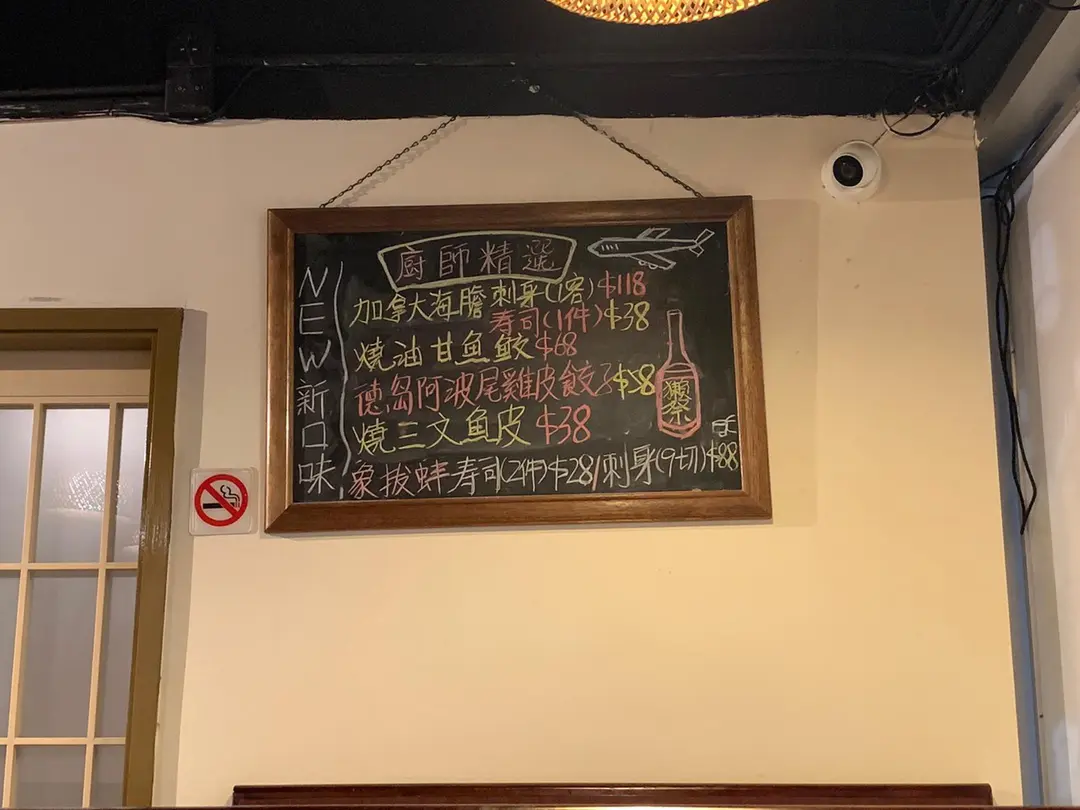 廚師精選
NEW新口味
加拿大海膽刺身(1客)$118
寿司(1件)$38
燒油甘魚鮫$68
德島阿波尾雞皮餃子$38
燒三文魚皮$38
象拔蚌寿司(2件)$28/刺身(9切)$88
獺祭